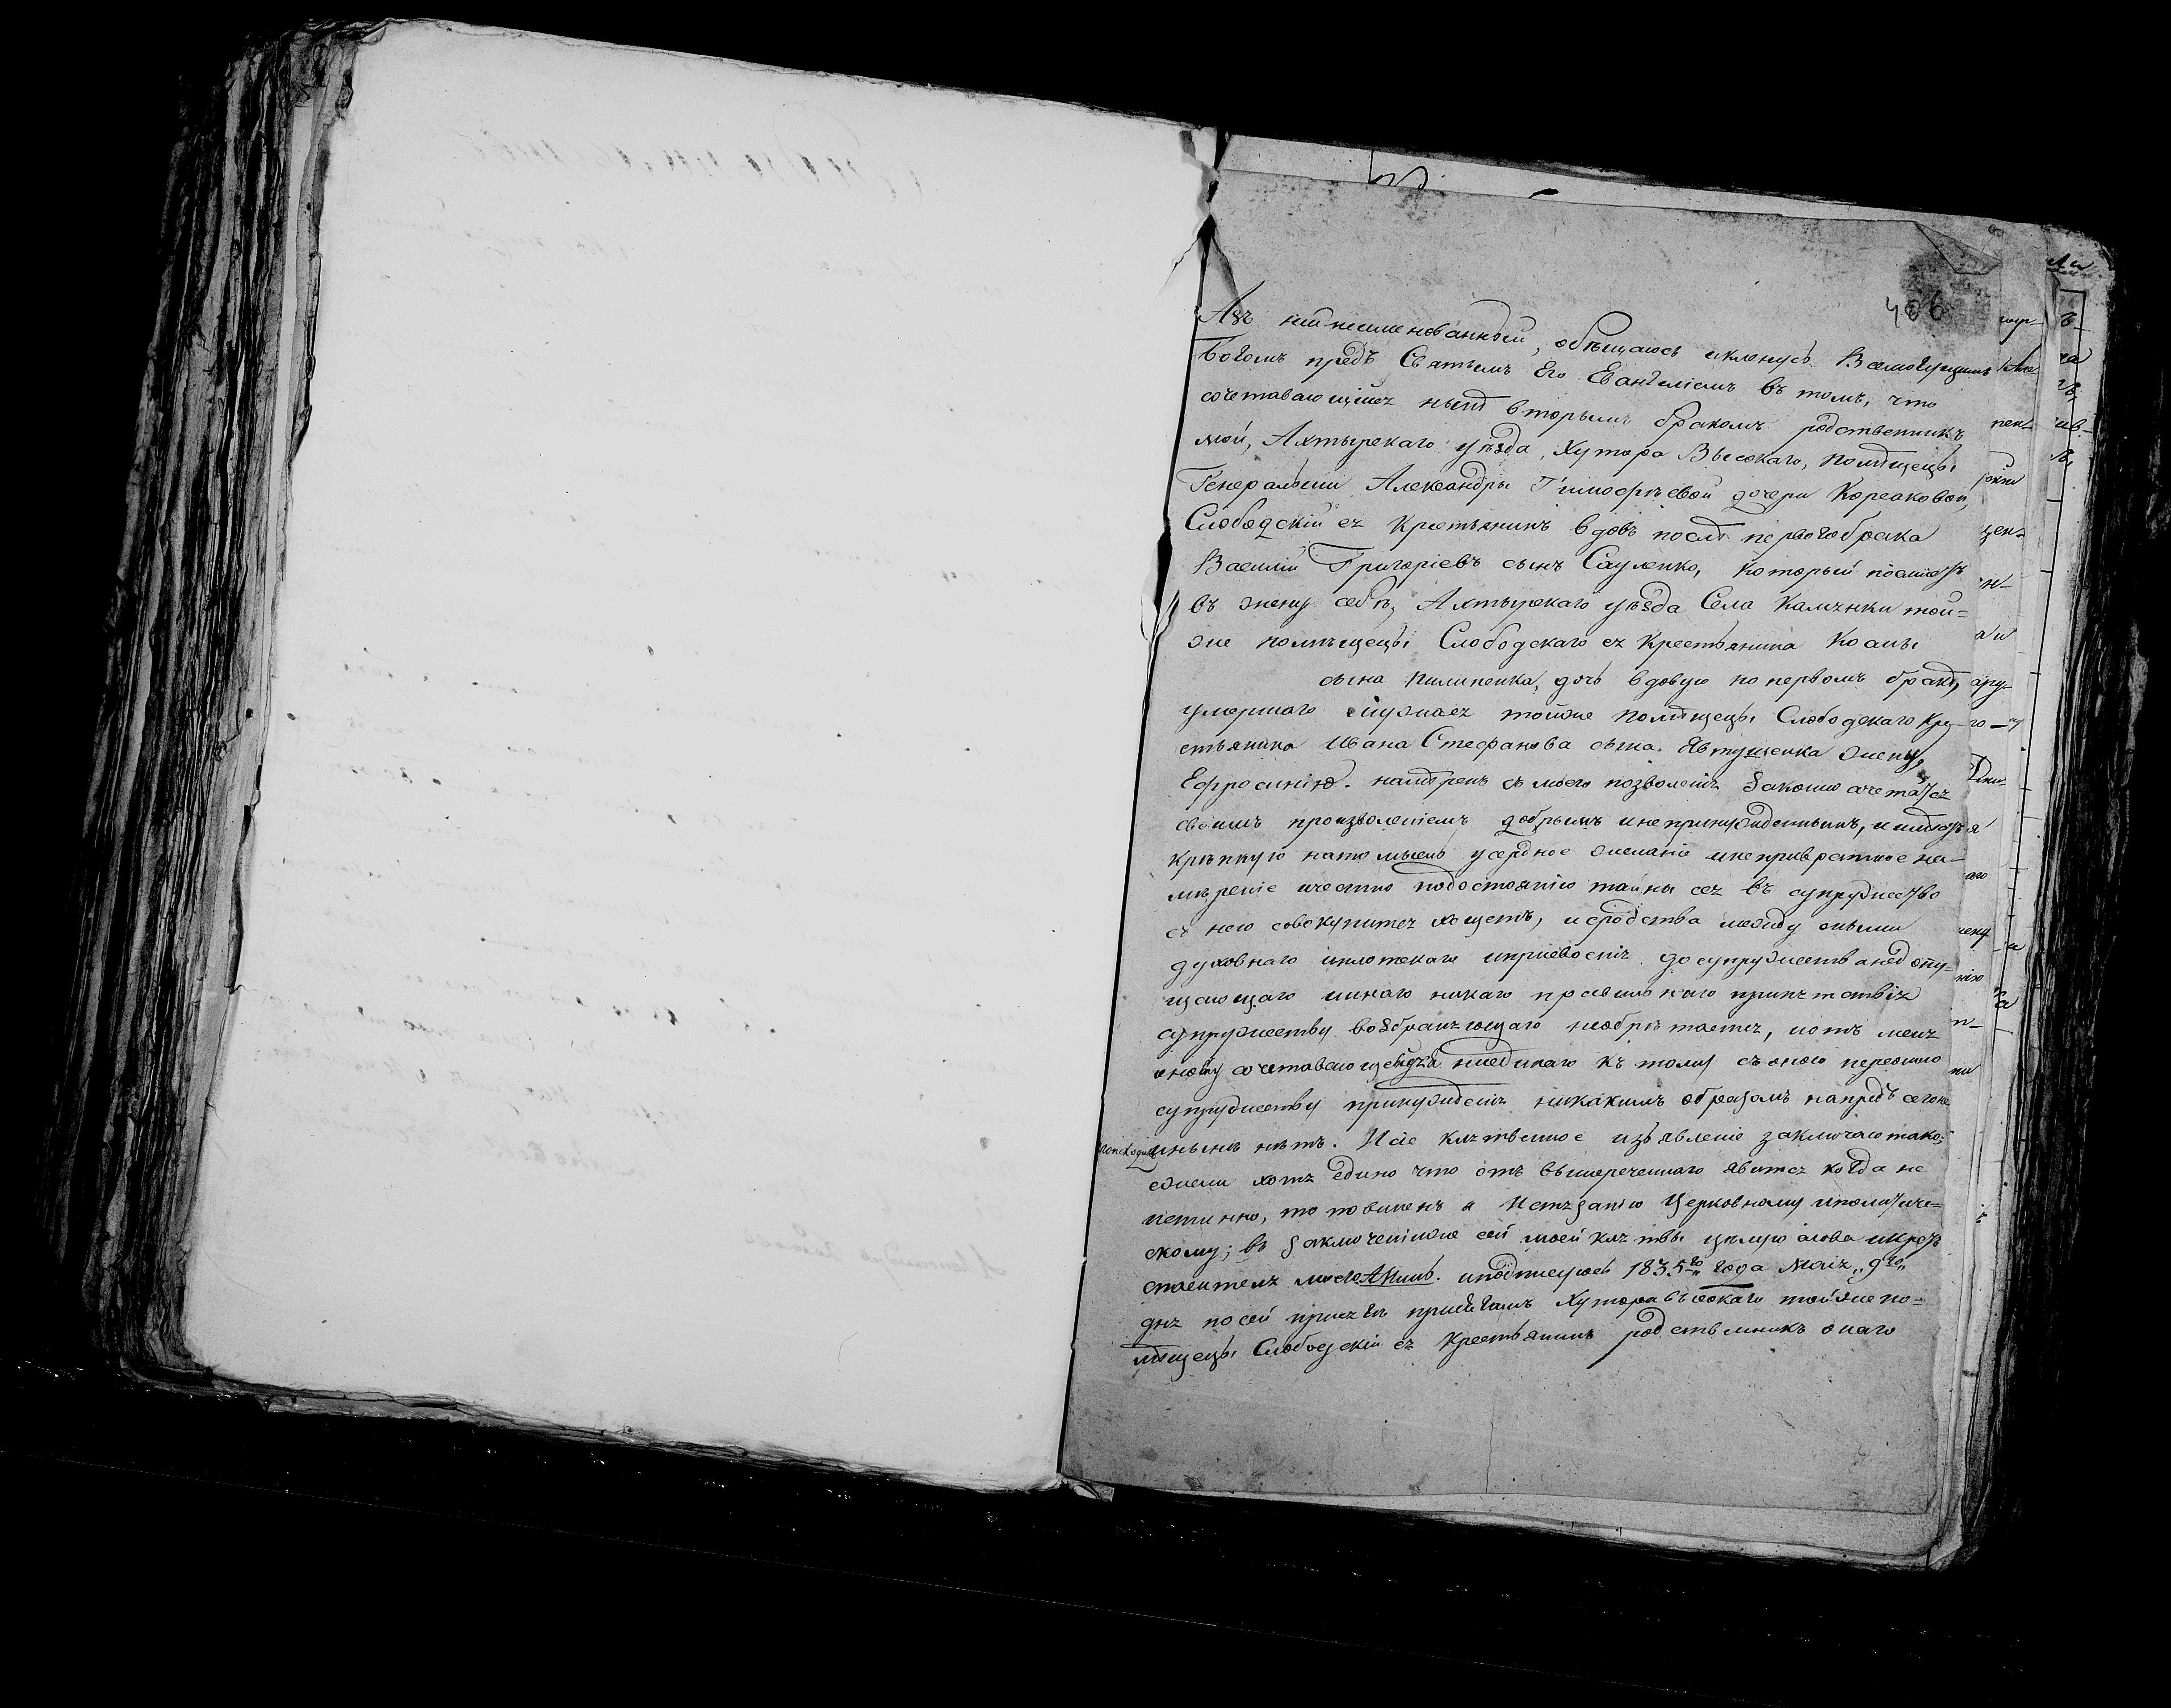 406
Азъ нижепоименованный, обѣщаюсь иклянусь Всемогущимъ
Богомъ предъ Святымъ Его Евангеліемъ въ томъ, что
сочетавающійся нынѣ вторымъ бракомъ родственникъ
мой, Ахтырскаго уѣзда, Хутора Высокаго, помѣщецы
Генеральши Александры Тимофѣевой дочери Корсаковой,
Слободскій ея Крестьянинъ вдовъ послѣ перваго брака
Василій Григоріевъ сынъ Сауленко, который поемлетъ
въ жену себѣ, Ахтырскаго уѣзда Села Камянки той=
же помѣщецы Слободскаго ея Крестьянина Космы
сына Пилипенка, дочь вдовую по первомъ бракѣ,
умершаго мужа ея тойже помѣщецы Слободскаго Кре-
стьянина Ивана Стефанова сына Явтушенка жену,
Ефросинію. намѣренъ съ моего позволенія Законно сочетатся
своимъ произволеніемъ добрымъ инепринужденнымъ, иимѣетъ
крѣпкую натомысль усердное желаніе инепривратное на-
мѣреніе ичестно подостоянію тайны сея въ супружество
съ нею совокупитея хощетъ, исродства между оными
духовнаго иплотскаго иприсвоенія до супружества недопу-
щающаго иинаго никаго правильнаго припятствія
супружеству возбраняющаго необрѣтается, иотъ меня
оному сочетавающемуся ниединаго къ тому съ оною персоною
супружеству принужденія никакимъ образомъ напредъ сего не
инынѣ нѣтъ. И сіе клятвенное изъявленіе заключаю тако:
ежели хотя едино что отъ вышереченнаго явится когда не
истинно, то повиненъ я Истязанію Церковному иполитиче-
скому; въ заключеніиже сей моей клятвы цѣлую слова икрестъ
спасителя моего Аминь. иподписуюсь 1835го года Маія 9го
дня по сей присягѣ присягалъ Хутора Высокаго тойже по-
мѣщецы Слободскій ея Крестьянинъ родственникъ онаго